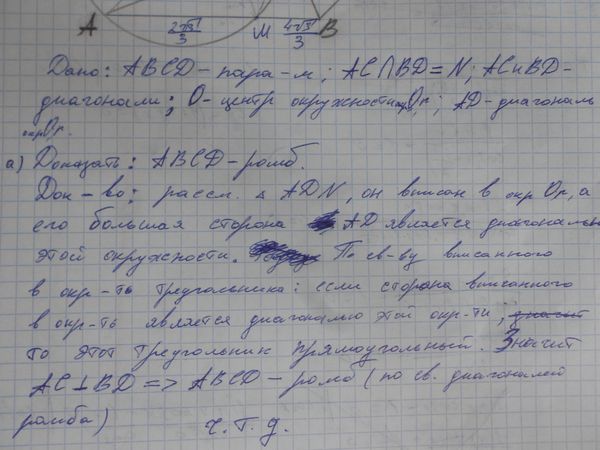 A 2√3/3 M 4√3/3 B
Дано: ABCD - пара-м; AC∩BD = N; AC и BD -
диагонали; O - центр окружности Or; AD - диагональ
окр Or.
а) Доказать: ABCD - ромб.
Док-во: рассм. △ ADN, он вписан в окр Or, а
его большая сторона AD является диагональю
этой окружности. По св-ву вписанного
в окр-ть треугольника: если сторона вписанного
в окр-ть является диагональю этой окр-ти, значит
то этот треугольник прямоугольный. Значит
AC⊥BD => ABCD - ромб (по св. диагоналей
ромба) ч.т.д.